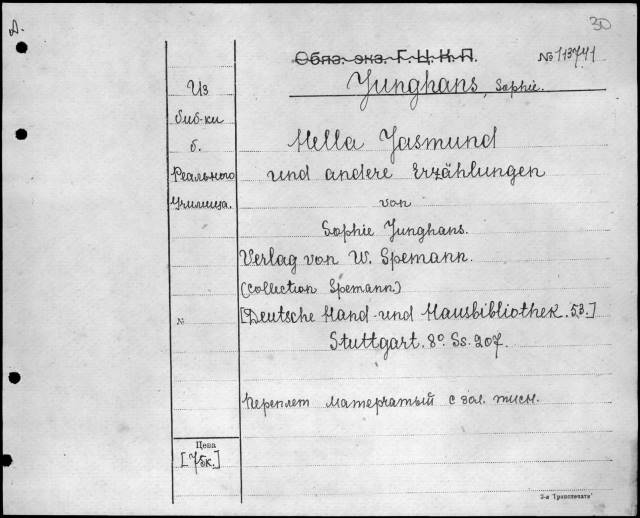 Д.
30
Обяз. экз. Г. Ц. К. П.
№ 113741
Junghans, Sophie.
Из
биб-ки
б.
Реального
Училища.
Hella Jasmund
und andere Erzählungen
von
Sophie Junghans.
Verlag von W. Spemann.
(Collection Spemann.)
[Deutsche Hand- und Hausbibliothek. 53.]
Stuttgart. 8º. Ss. 207.
№
Переплет матерчатый с зол. тисн.
Цена
[75к.]
3-я "Транспечать"